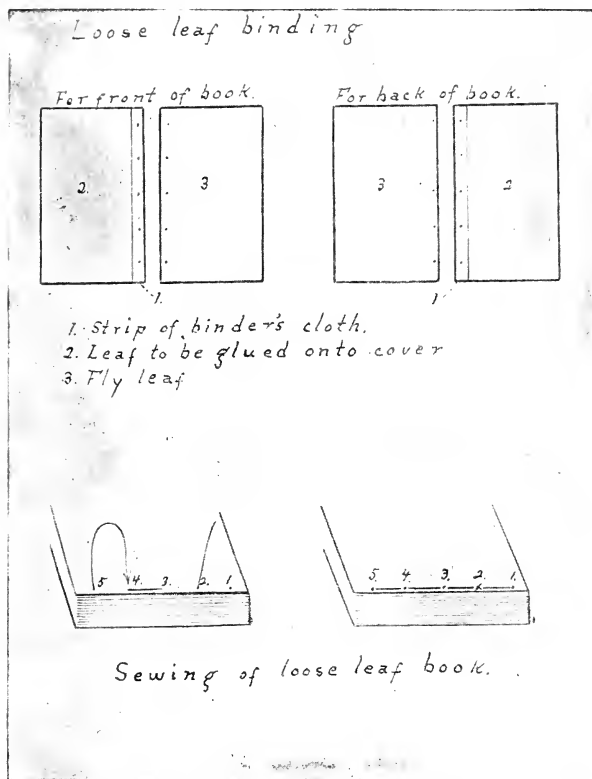 Loose leaf binding
For front of book. For back of book.
2. 3 3 2
1. 1
1. Strip of binder's cloth.
2. Leaf to be glued onto cover
3. Fly leaf
5 4. 3. 2. 1. 5. 4. 3. 2. 1.
Sewing of loose leaf book.